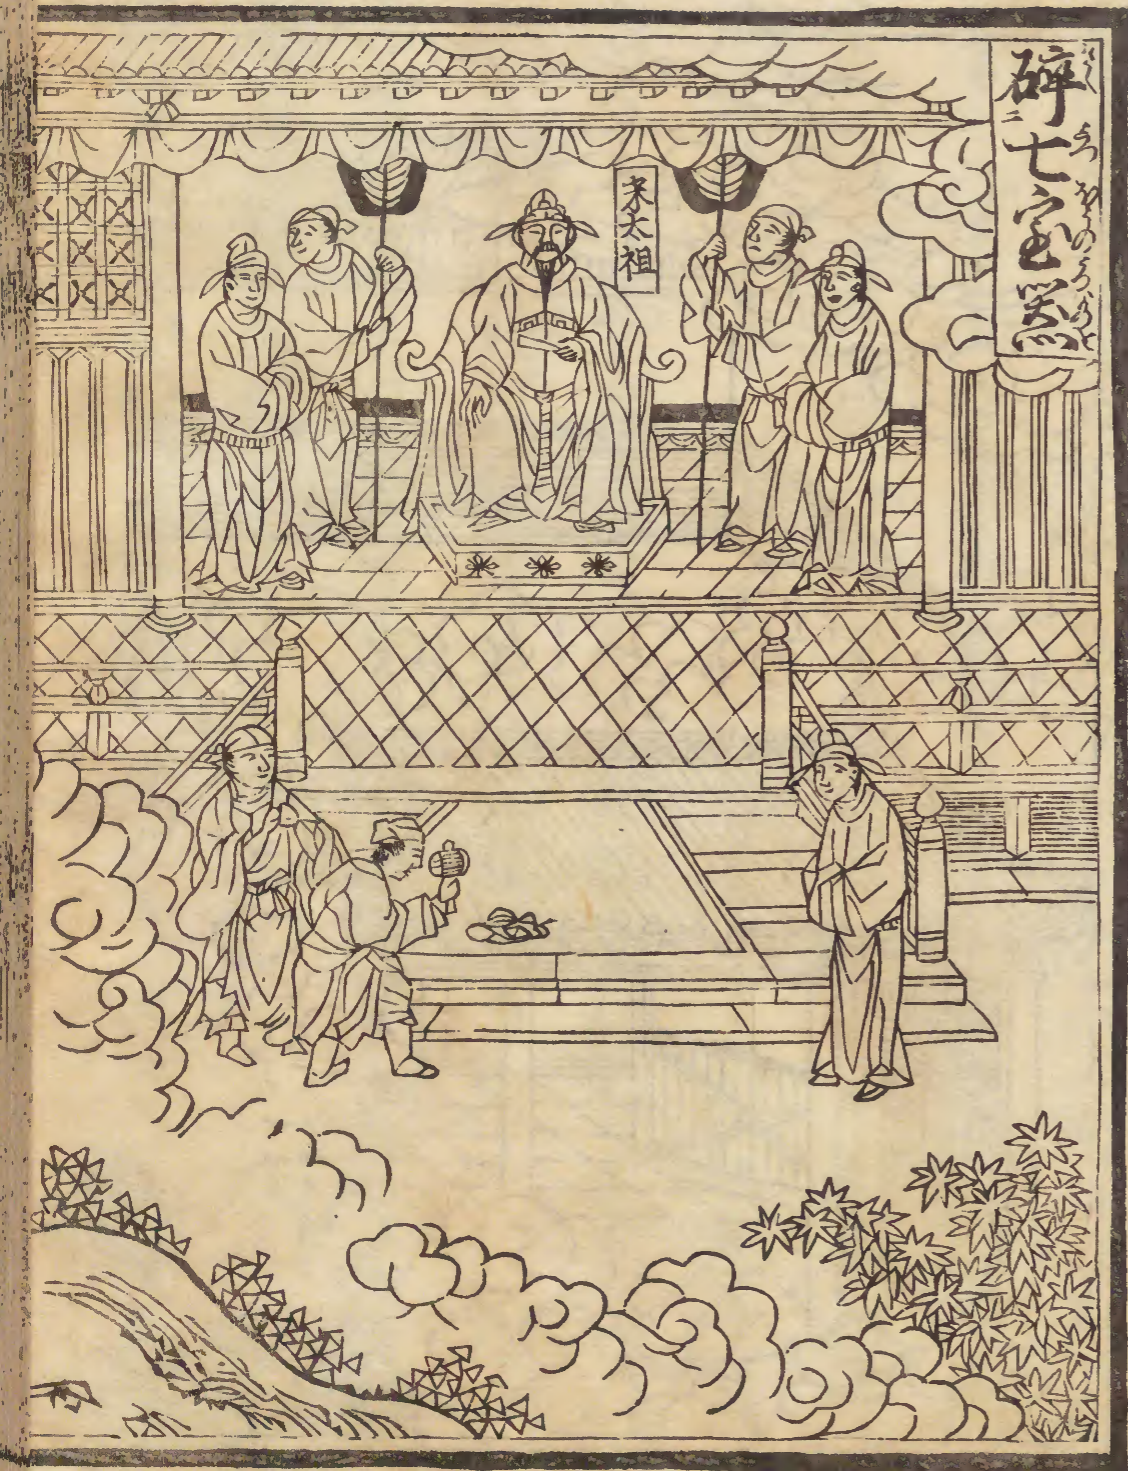 碎七宝器
宋太祖